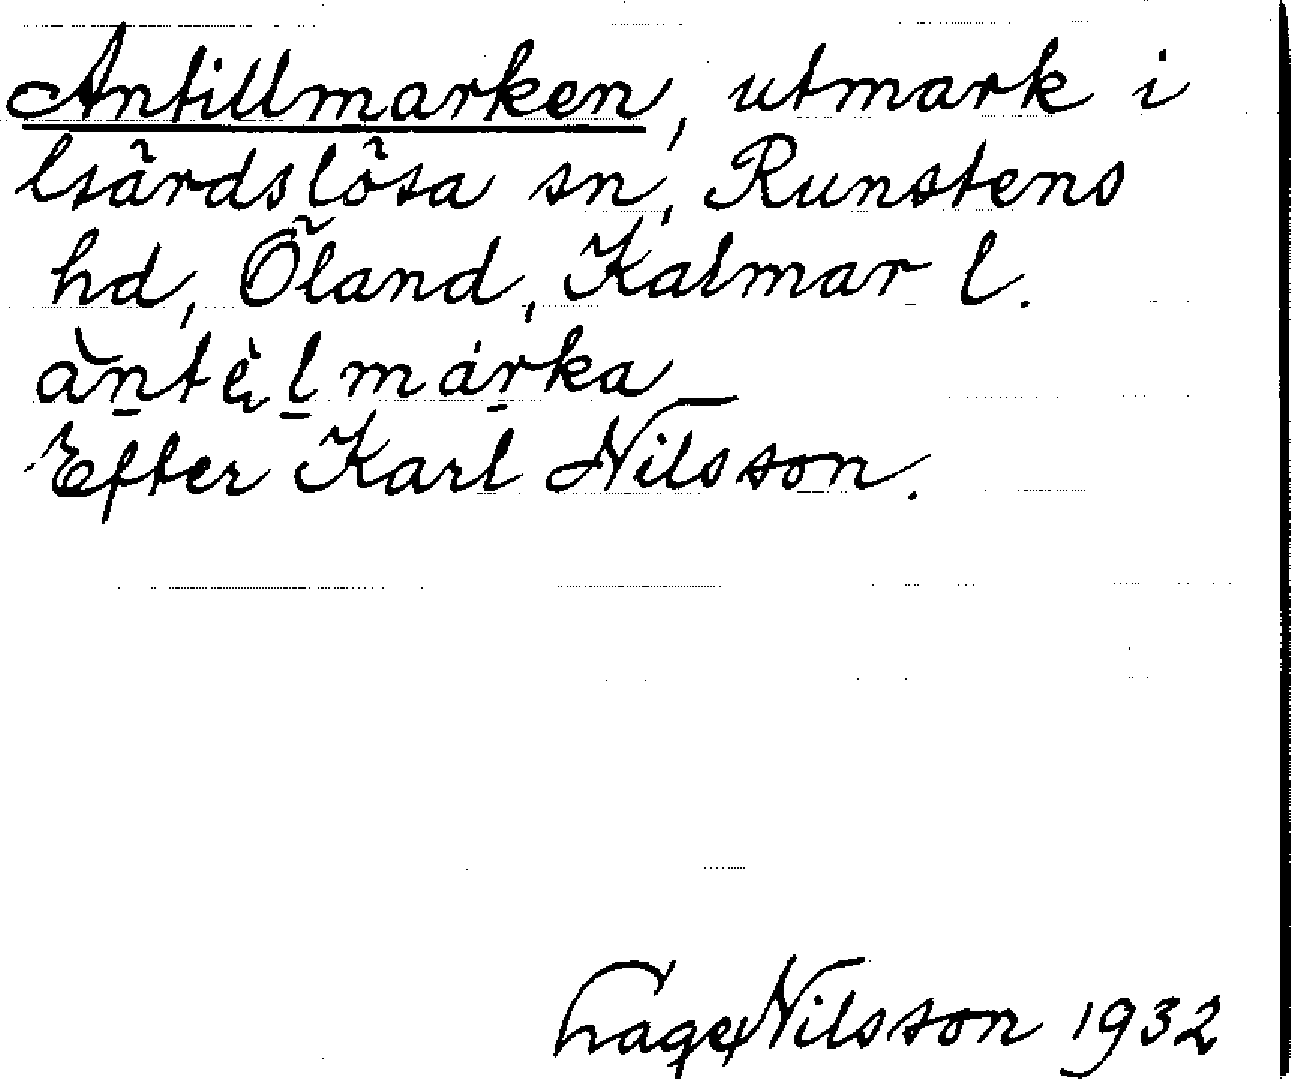 Antillmarken, utmark i
Gärdslösa sn, Runstens
hd, Öland, Kalmar l.
àntèlmárka
Efter Karl Nilsson.
Nilsson 1932